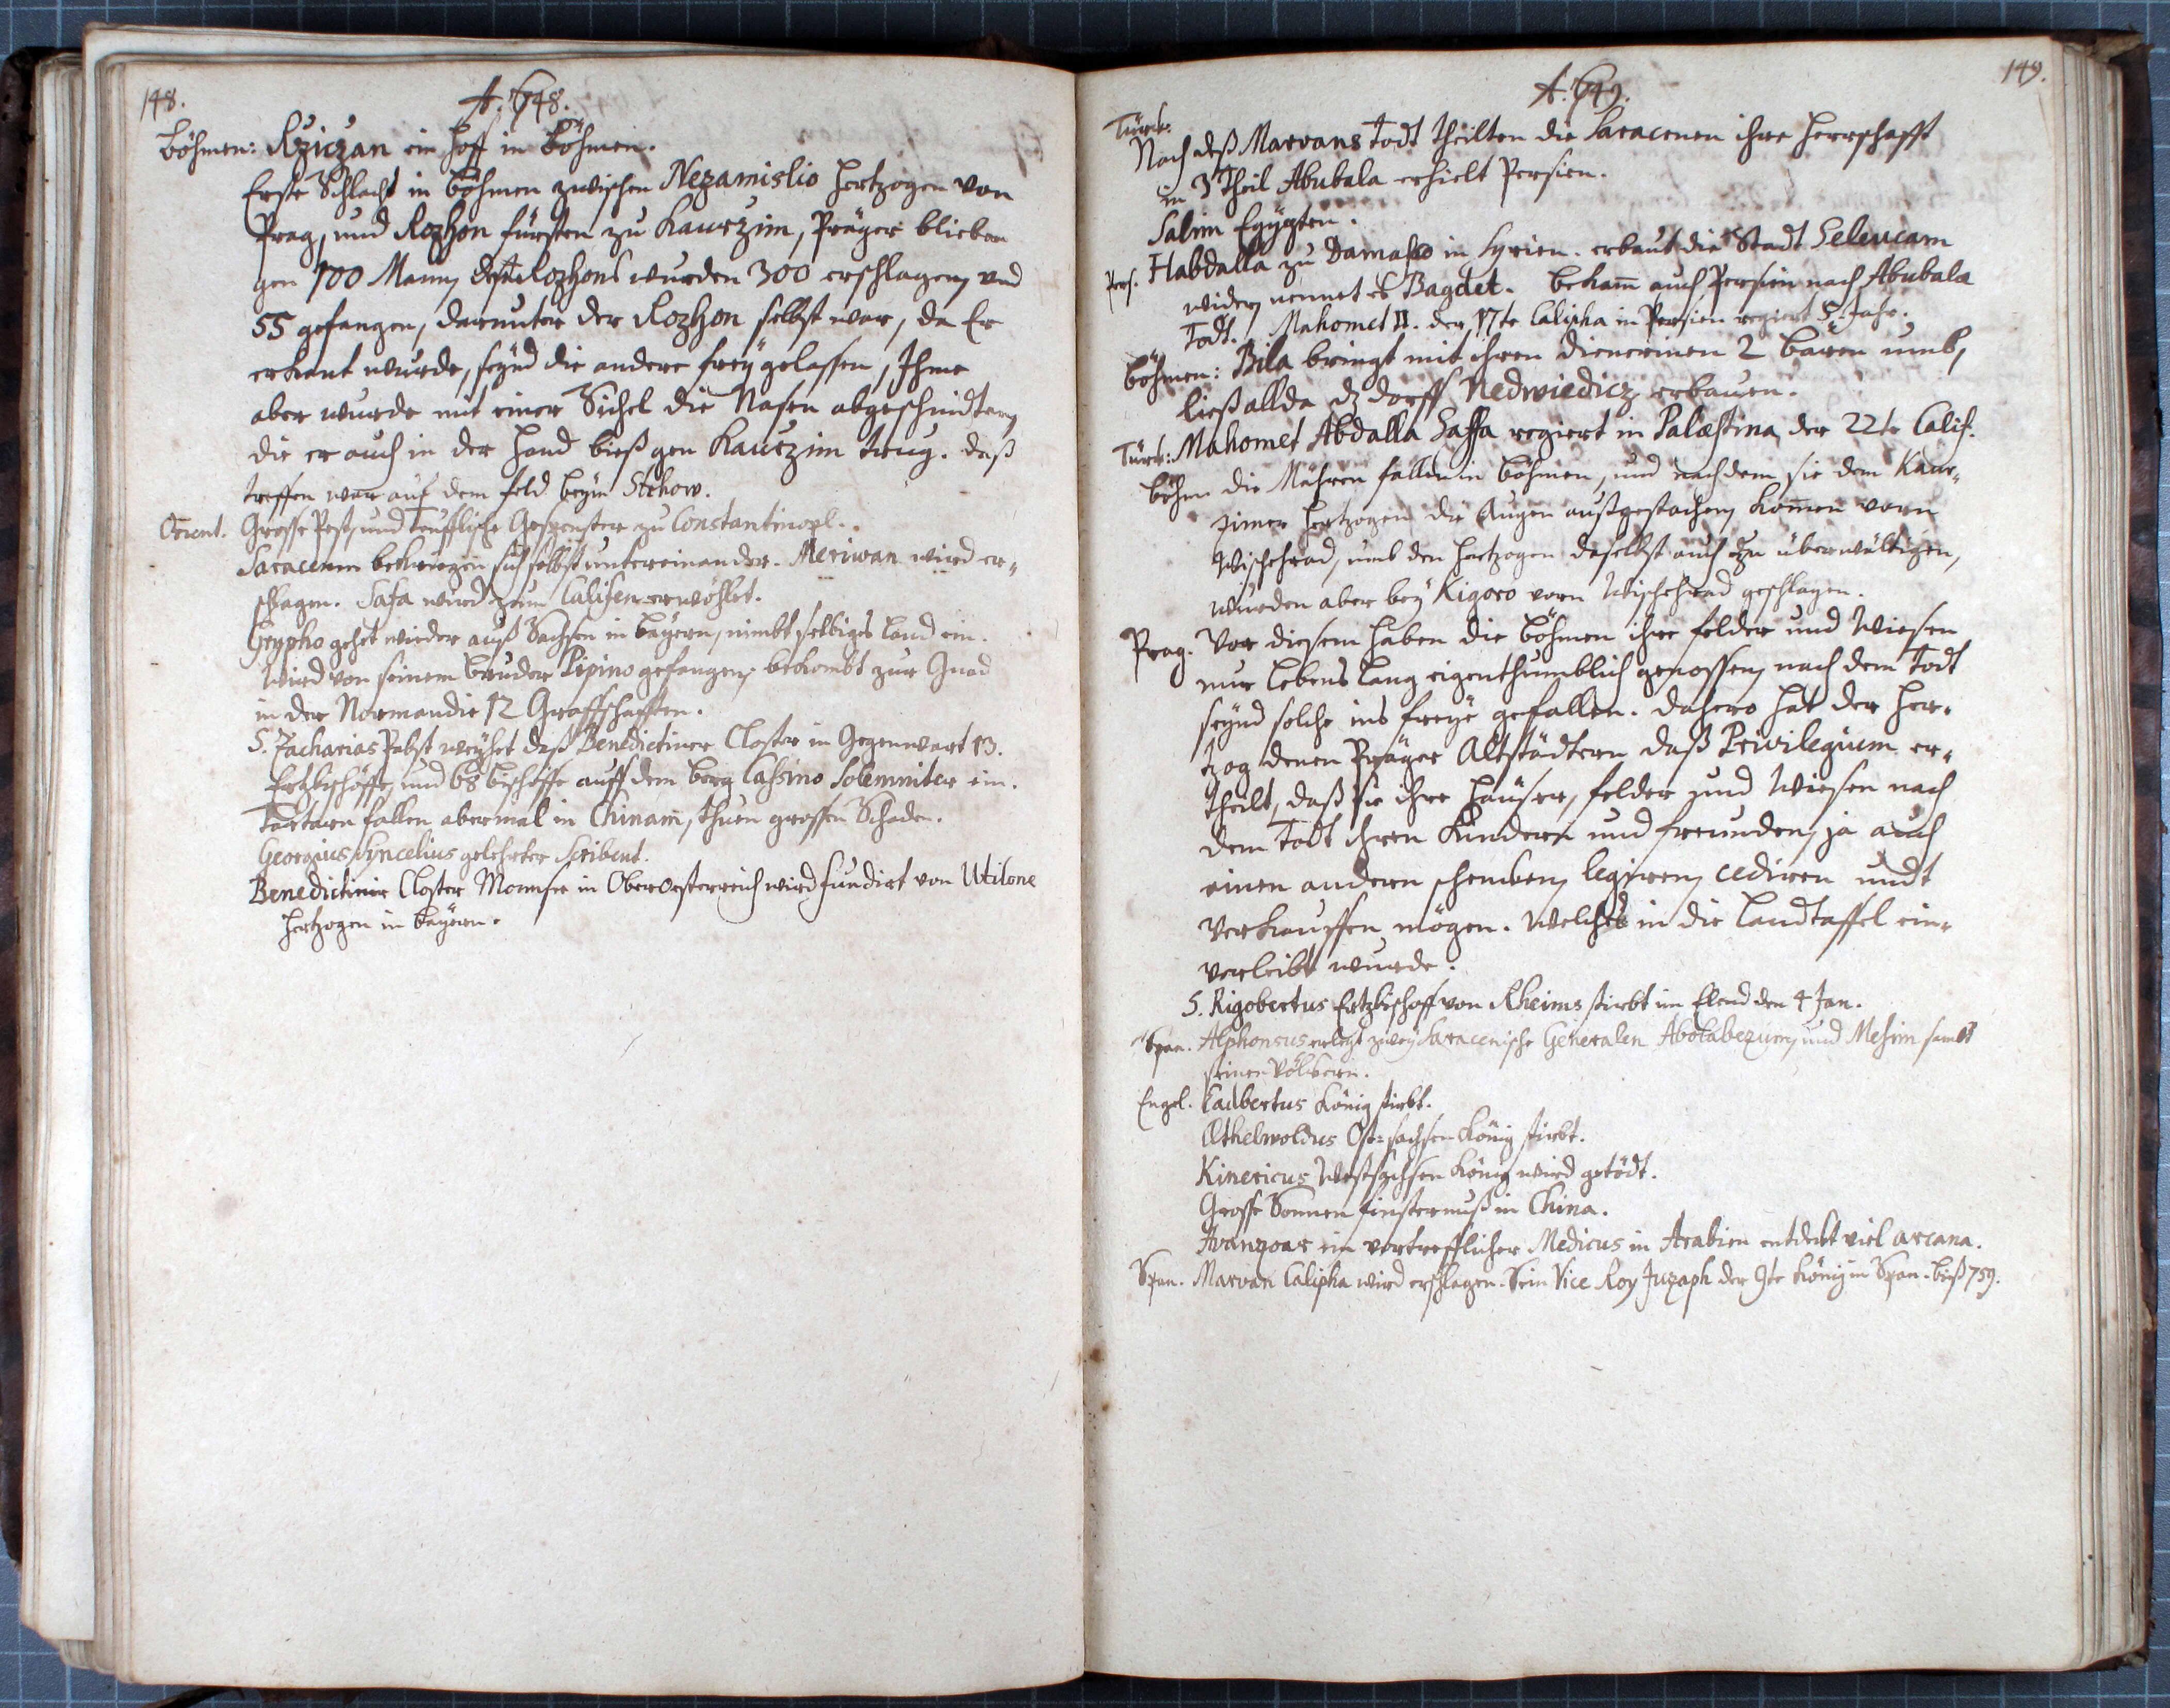 148.
A. 748.
Böhmen: Rziczan ein Hoff in Böhmen.
Erste Schlacht in Böhmen zwischen Nezamislio Hertzogen von
Prag, und Rozhon fürsten zu Kaurzim, Präger blieben
gen 100 Mann, deß Rozhons wurden 300 erschlagen, und
55 gefangen, darunter der Rozhon selbst war, da Er
erkent wurde, seynd die andere frey gelassen, Ihme
aber wurde mit einer Sichel die Nasen abgeschnidten,
die er auch in der Hand bieß gen Kaurzim trug. daß
treffen war auf dem feld beym Stehow.
Orient. Grosse Pest, und Teufflische Gespenster zu Constantinopl.
Saracenen bekriegen sich selbst untereinander. Meriwan wird er-
schlagen. Safa wird zum Califen erwöhlet.
Grypho gehet wieder auß Sachsen in Bayern, nimbt selbiges Land ein.
Wird von seinem bruder Pipino gefangen, bekombt zur Gnad
in der Normandie 12 Graffschafften.
S. Zacharias Pabst weyhet daß Benedictiner Closter in Gegenwart 13.
Ertzbischöffe, und 68 bischöffe auff dem berg Cassino Solemniter ein.
Tartarn fallen abermal in Chinam, thuen grossen Schaden.
Georgius Syncelius gelehrter Scribent.
Benedictiner Closter Monnsee in Oberoesterreich wird fundirt von Utilone
Hertzogen in Bayern.
149.
A. 749.
Türck:
Nach deß Marvans Todt theilten die Saracenen ihre Herrschafft
in 3 Theil Abubala erhielt Persien.
Salim Egypten.
Pers. Habdalla zu Damasco in Syrien. erbaut die Stadt Seleucam
wider, nennet es Bagdet. bekam auch Persien nach Abubala
Todt. Mahomet II. der 17te Calipha in Persien regiert 5 Jahr.
Böhmen: Bila bringt mit ihren dienerinen 2 bären umb,
ließ allda dz dorff Nedwiedicz erbauen.
Türck: Mahomet Abdalla Saffa regiert in Palæstina der 22te Calif.
Böhm die Mähren fallen in Böhmen, und nachdem sie dem Kaur-
zimer Hertzogen die Augen außgestochen, kommen vorn
Wischehrad, umb den Hertzogen daselbst auch zu überwältigen,
wurden aber bey Kigoro vorn Wischehrad geschlagen.
Prag. Vor diesem haben die Böhmen ihre felder und Wiesen
nur lebens lang eigenthumblich genossen, nach dem Todt
seynd solche ins freye gefallen. dahero hat der Her-
tzog denen Präger Altstädtern daß Privilegium er-
theilt, daß sie ihre Häuser, felder und Wiesen nach
dem Todt ihren Kindern und freunden, ja auch
einen andern schenken, legiren, cediren undt
verkauffen mögen. Welches in die Landtaffel ein-
verleibt wurde.
S. Rigobertus Ertzbischoff von Rheims stirbt im Elend den 4 Jan.
Span. Alphonsus erlegt zwey Saracenische Generalen Abolabezum, und Mehim sambt
seinen Völckern.
Engel. Eadbertus König stirbt.
Æthelwoldus Ost-sachsen König stirbt.
Kinericus Westsachsen König wird getödt.
Grosse Sonnen finsternuß in China.
Avanzoar ein vortrefflicher Medicus in Arabien entdeckt viel arcana.
Span. Marvan Calipha wird erschlagen. Sein Vice Roy Juzaph der 9te König in Span. bieß 759.